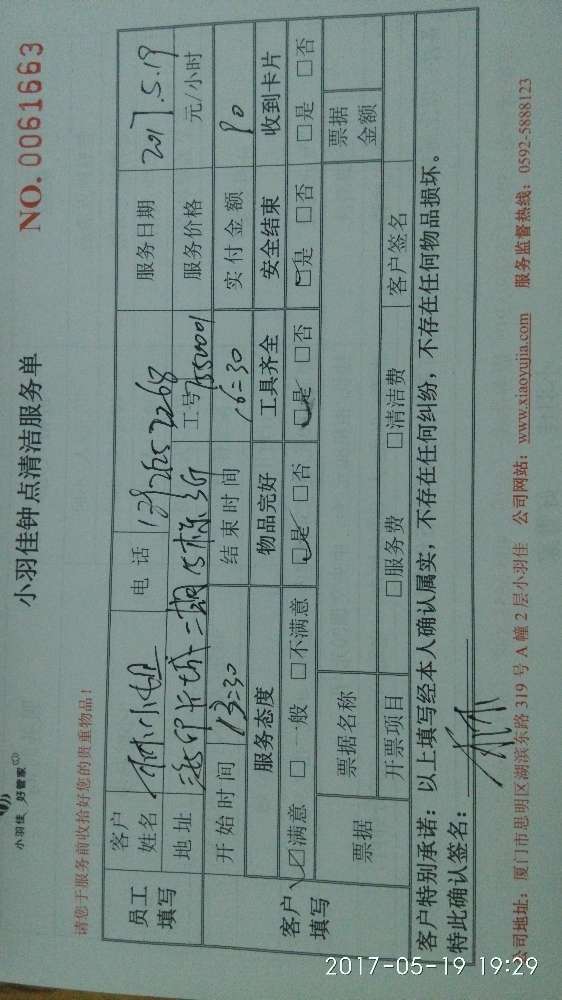 小羽佳 好管家
小羽佳钟点清洁服务单
NO. 0061663
请您于服务前收拾好您的贵重物品！
员工填写
客户姓名 林小姐 电话 服务日期 2017.5.19
地址 二期 工号 服务价格 元/小时
开始时间 13:30 结束时间 16:30 实付金额 90
客户填写
服务态度 物品完好 工具齐全 安全结束 收到卡片
☑满意 □一般 □不满意 ☑是 □否 ☑是 □否 ☑是 □否 □是 □否
票据 票据名称 票据金额
开票项目 □服务费 □清洁费 客户签名
客户特别承诺：以上填写经本人确认属实，不存在任何纠纷，不存在任何物品损坏。
特此确认签名：
公司地址：厦门市思明区湖滨东路 319 号 A 幢 2 层小羽佳 公司网站：www.xiaoyujia.com 服务监督热线：0592-5888123
2017-05-19 19:29